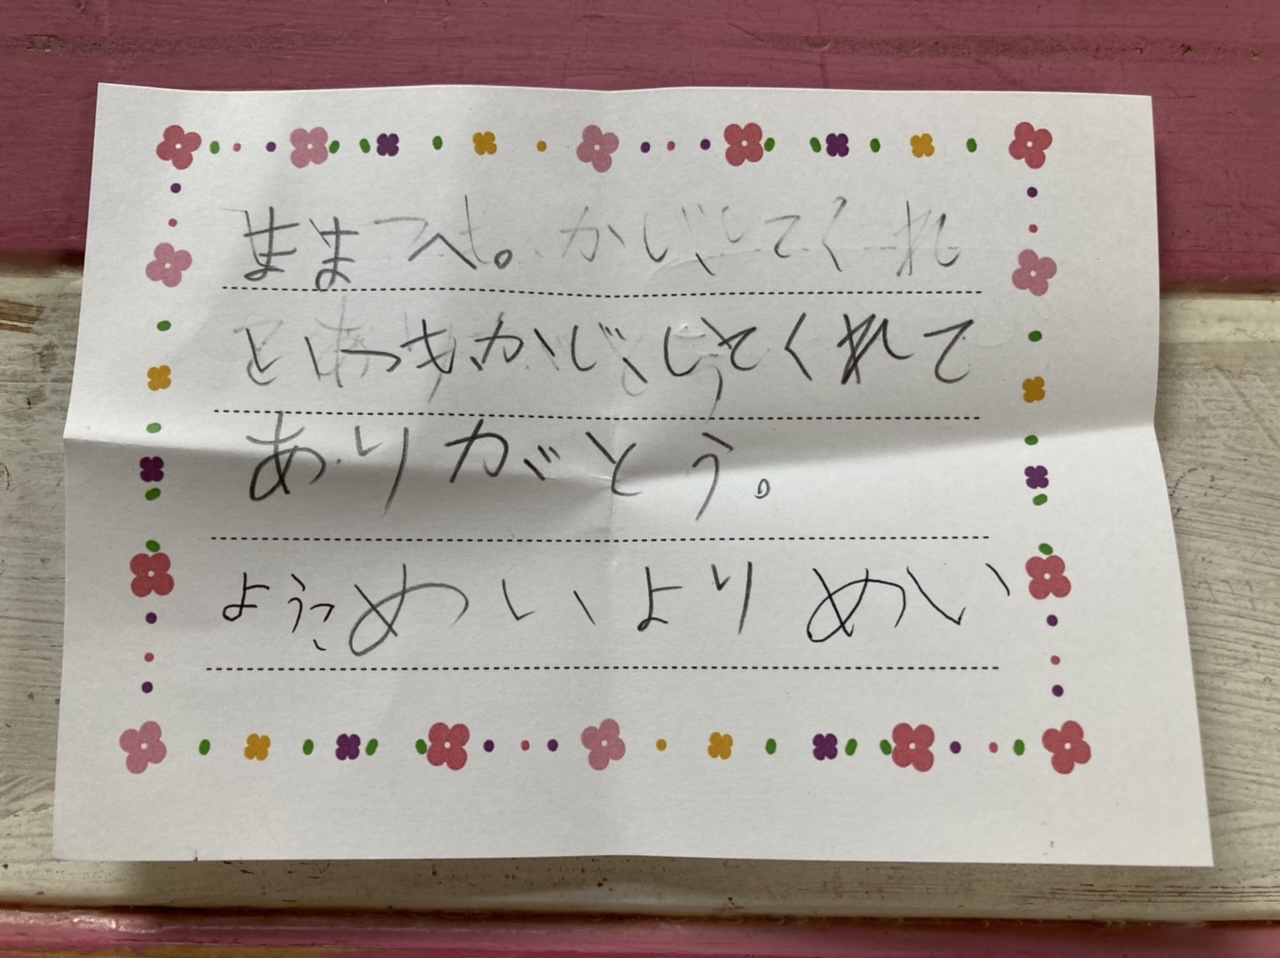 ままへ。かじ、してくれ
といつもかじ、してくれて
ありがとう。
ようこめいよりめい